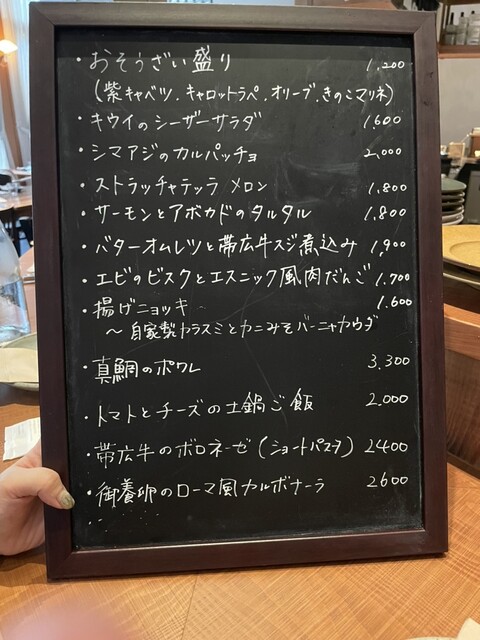 ・おそうざい盛り 1,200
(紫キャベツ.キャロットラペ.オリーブ.きのこマリネ)
・キウイのシーザーサラダ 1,600
・シマアジのカルパッチョ 2,000
・ストラッチャテッラ メロン 1,800
・サーモンとアボカドのタルタル 1,800
・バターオムレツと帯広牛スジ煮込み 1,900
・エビのビスクとエスニック風肉だんご 1,700
・揚げニョッキ 1,600
～自家製カラスミとカニみそバーニャカウダ
・真鯛のポワレ 3,300
・トマトとチーズの土鍋ご飯 2,000
・帯広牛のボロネーゼ(ショートパスタ) 2400
・御養卵のローマ風カルボナーラ 2600